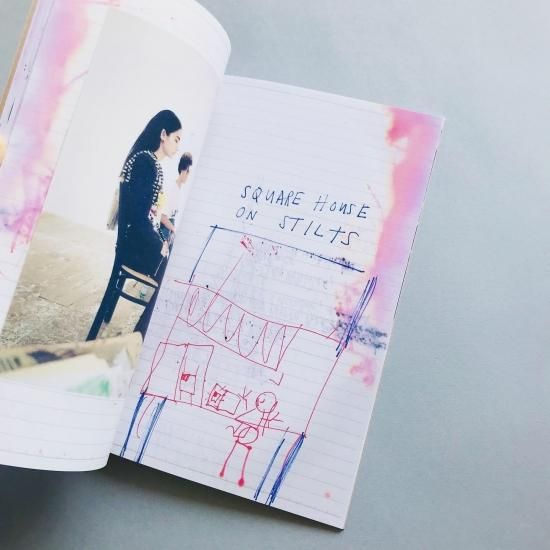 SQUARE HOUSE
ON STILTS